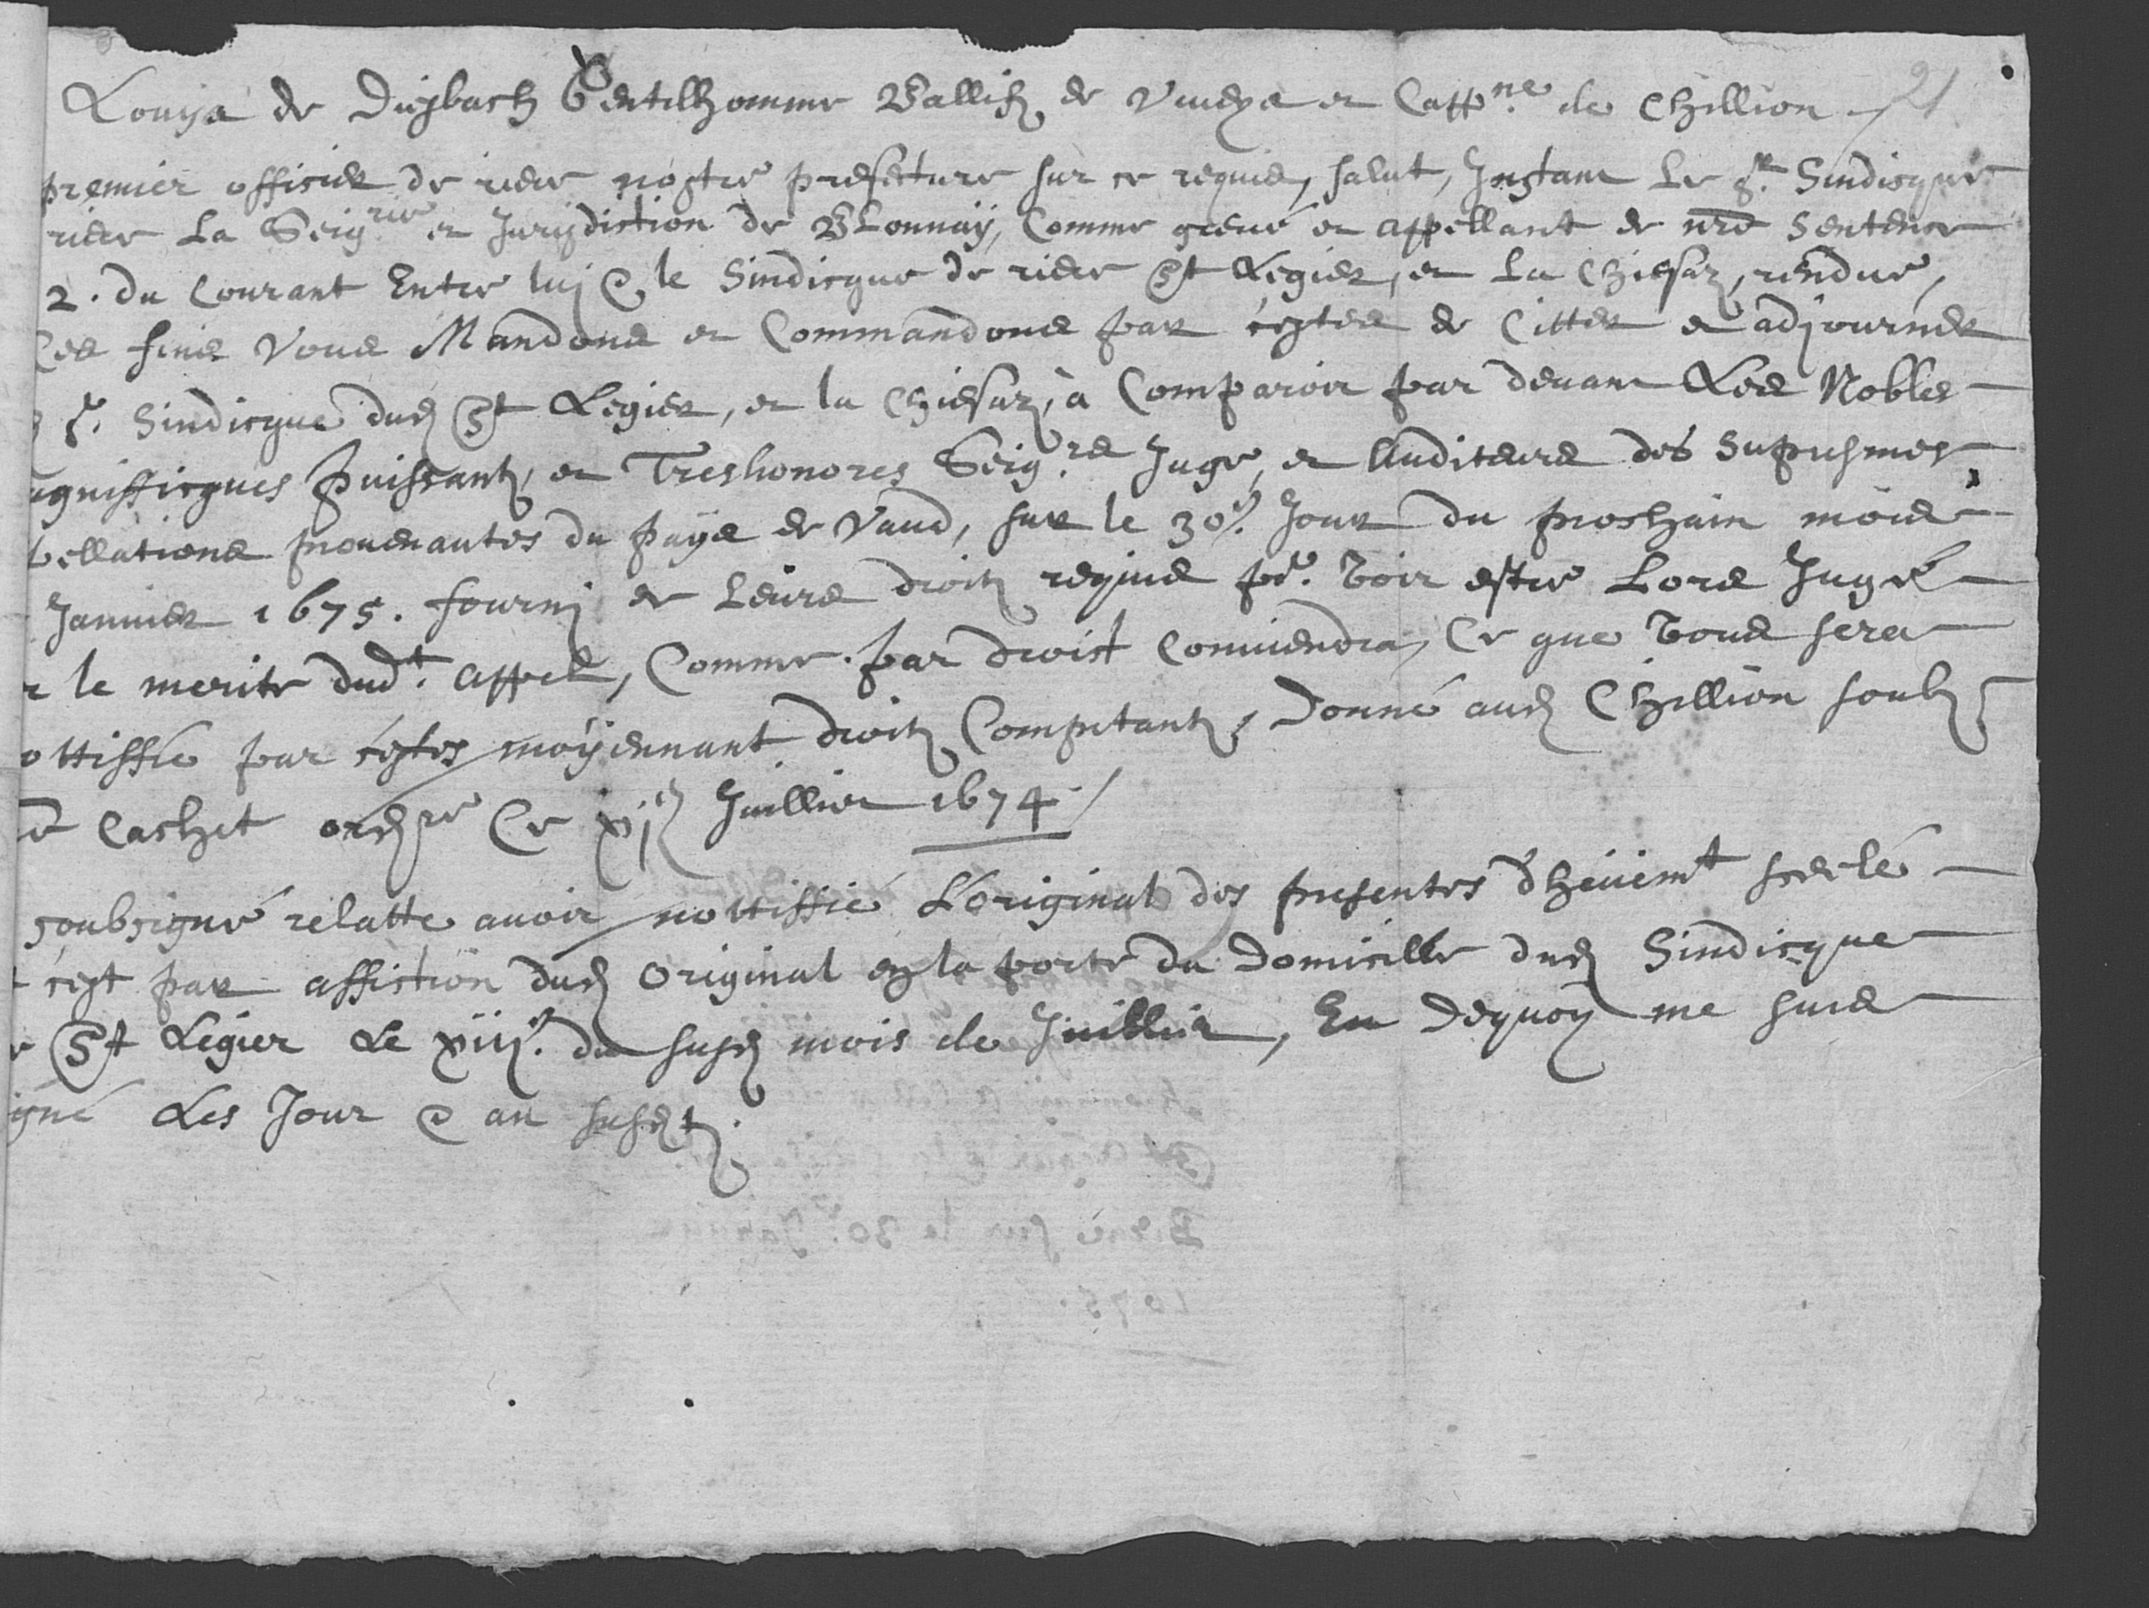 21
Louys de Diesbach Gentilhomme Ballifz de Viueys et Capp.ne de Chillion
premier officier de riere nostre prefecture sur ce requis, salut, Instant Le Sr. Sindicque
riere La Seig.rie et Jurisdiction de Blonnay, Comme greué et appellant de nre Sentence
2. du Courant Entre luj & le Sindicque de riere St Legier, et La Chiesaz, rendue,
Ces fins Vous Mandons et Commandons par cestes de Citter et adjourner
Sr. Sindicque dud St Legier, et la Chiesaz, à Comparoir par deuant Les Nobles
agniffiques Puissantz, et Treshonores Seig.rs Juge, et Auditeurs des Supresmes
pellations prouenantes du pays de Vaud, sur le 30e. Jour du prochain mois
Januier 1675. fourni de Leurs droitz requis pr. Voir estre Lors Jugé
r le merite dud.t appel, Comme par droict Conuiendra, Ce que Vous sera
ottiffié par cestes moÿennant droitz Competantz, Donné aud Chillion soubz
re Cachet ordre Ce xije Juillier 1674
soubsigné relatte auoir nottiffié L'original des presentes d'heüem.t scelé
cest par affiction dud original en la porte du Domicille dud Sindicque
e St Legier Le xiije. du susd mois de Juillier, En Dequoy me suis
igné Les Jour & an susdtz.